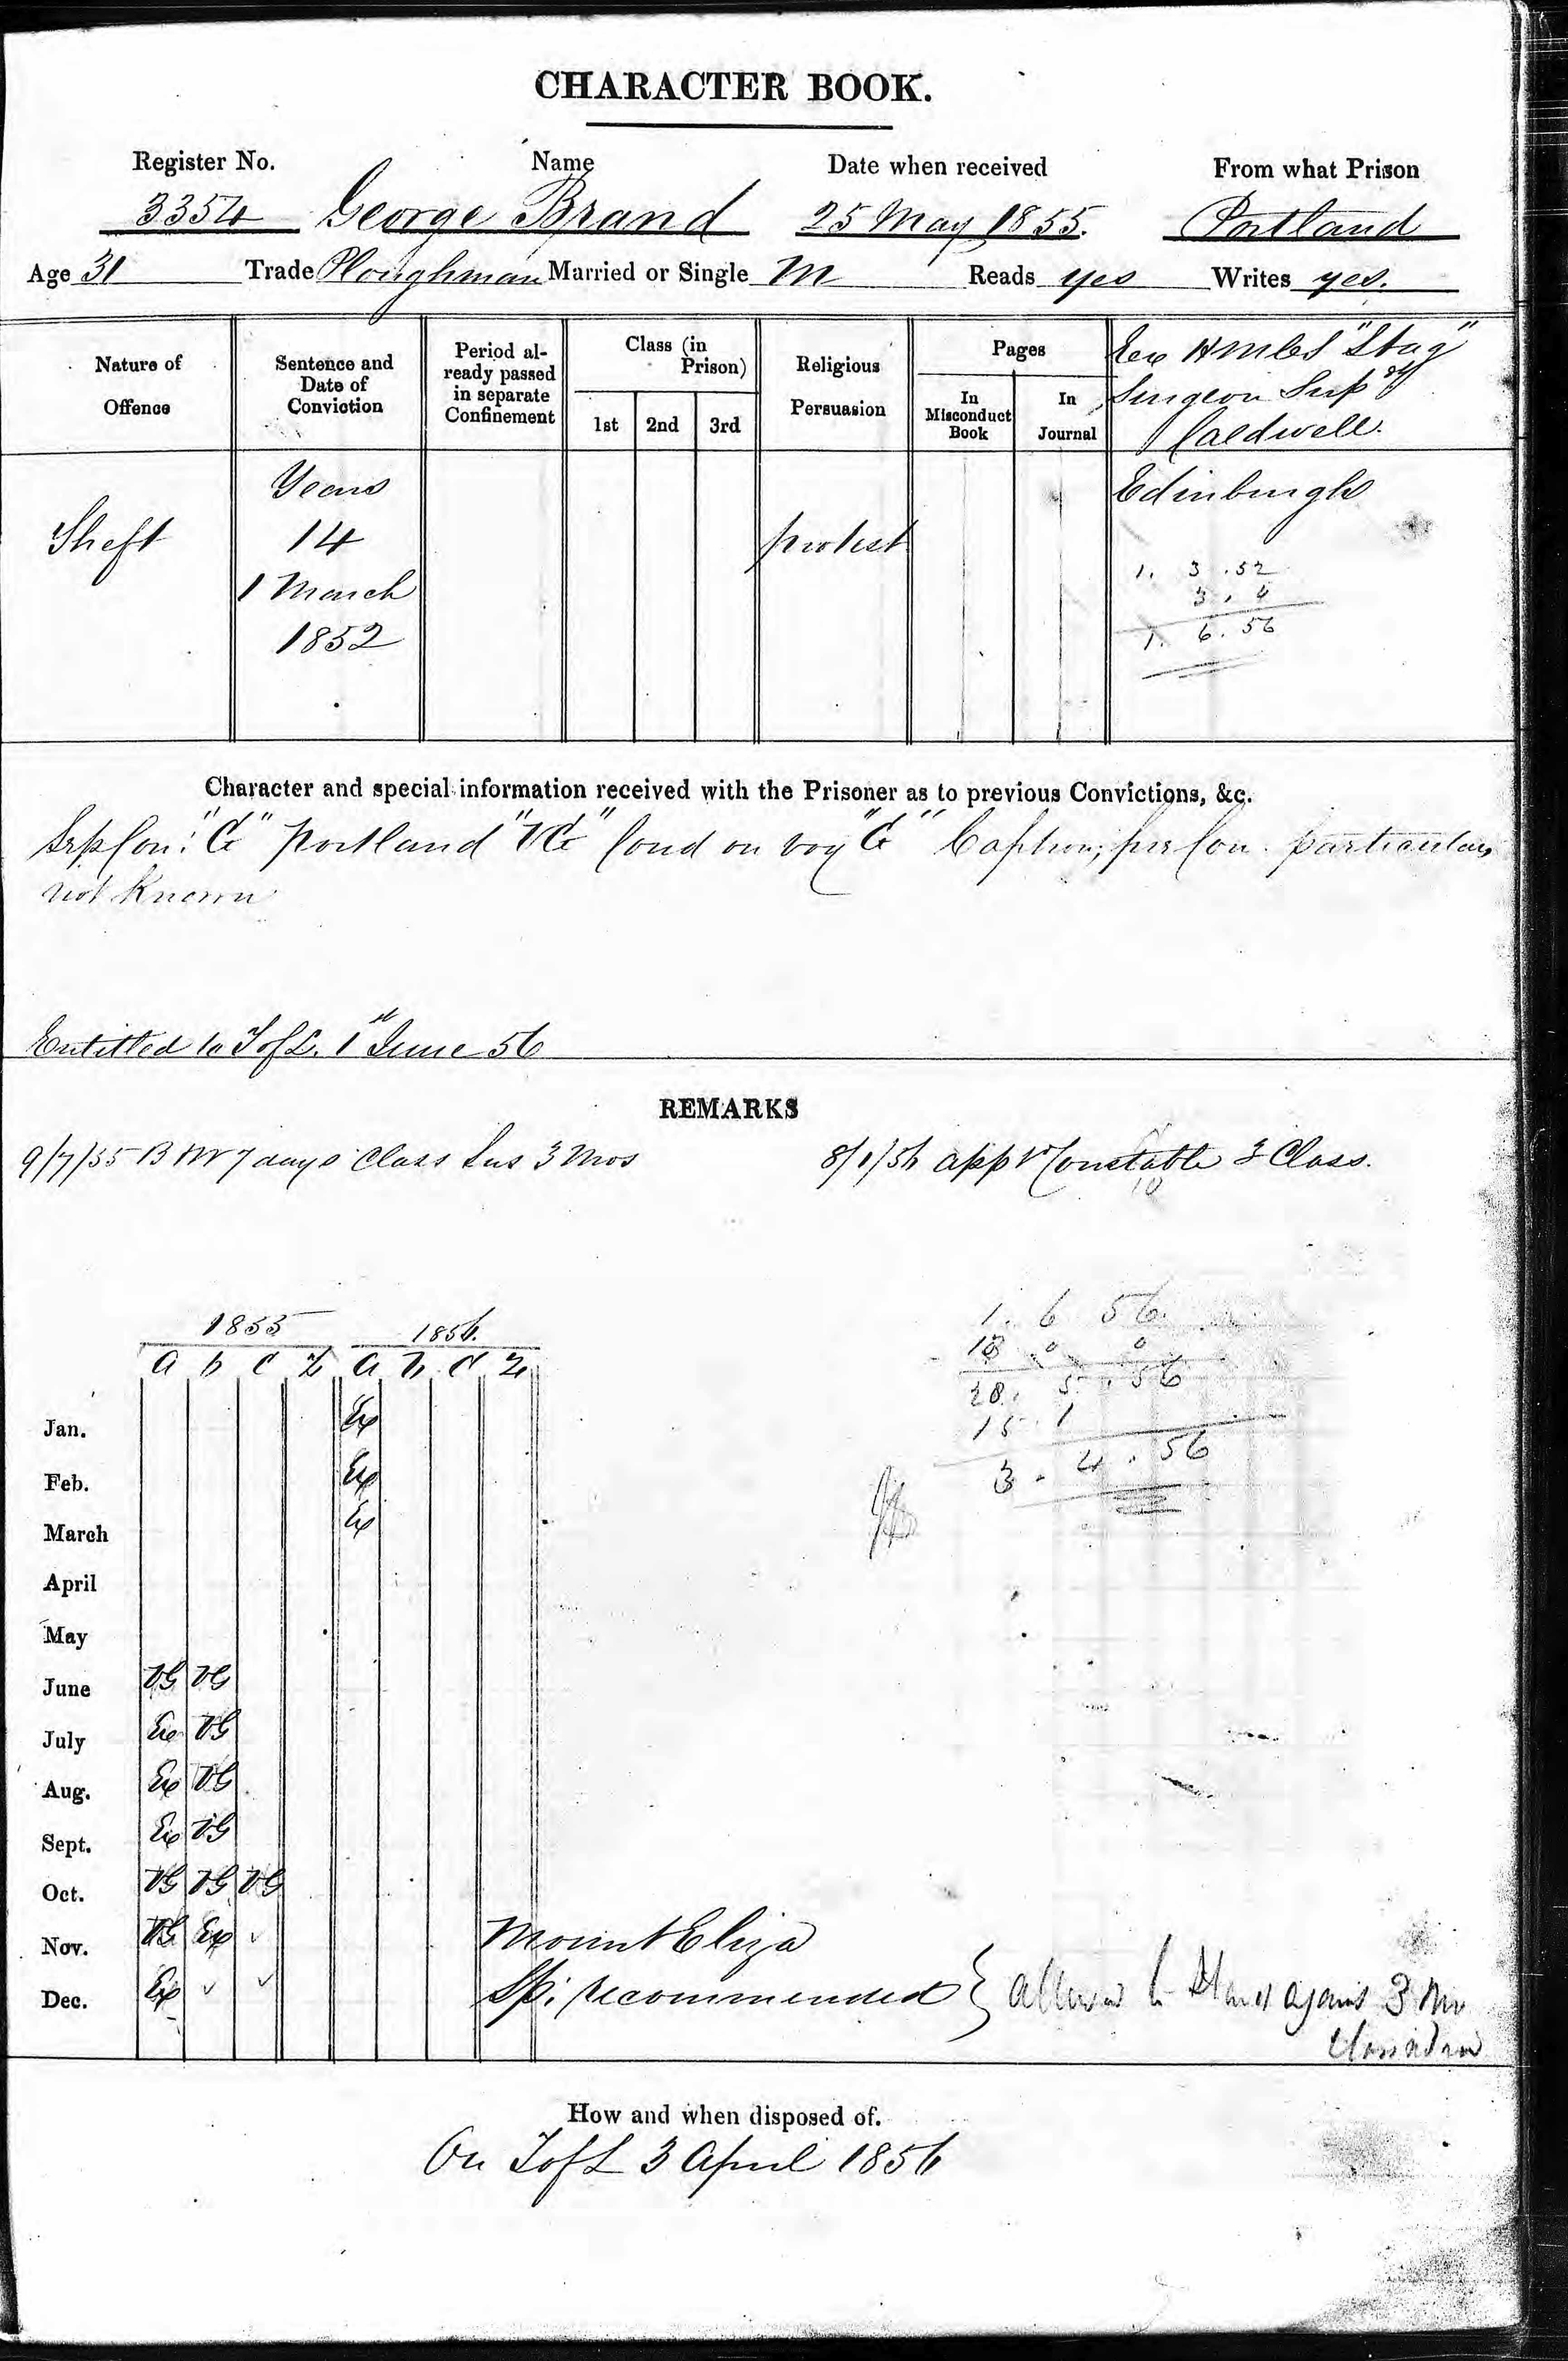 CHARACTER BOOK.
Register No. Name Date when received From what Prison
3354 George Brand 25 May 1855. Portland
Age 31 Trade Ploughman Married or Single M Reads yes Writes yes.
Nature of Offence
Sentence and Date of Conviction
Period already passed in separate Confinement
Class (in Prison)
1st 2nd 3rd
Religious Persuasion
Pages
In Misconduct Book
In Journal
"Stag"
Surgeon Supt
Caldwell.
Theft
Years
14
1 March
1852
protest
Edinburgh
1. 3 .52
3 . 4
1. 6. 56
Character and special information received with the Prisoner as to previous Convictions, &c.
Sep Con: "G" Portland "VG" Cond on voy "G" Caption; pre Con. particulars
not Known
Entitled to T of L. 1st June 56
REMARKS
9/7/55 7 days Class Sus 3 Mos
8/1/56 appd Constable 3 Class.
1855 1856.
a b c z a b c z
1. 6 56.
18 0 0
28. 5. 56
15. 1
3 . 4 . 56
Jan. Ex
Feb. Ex
March Ex
April
May
June VG VG
July Ex VG
Aug. Ex VG
Sept. Ex VG
Oct. VG VG VG
Nov. VG Ex ✓
Dec. Ex ✓ ✓
Mount Eliza
Sp: recommended } allowed to against 3 Mo
How and when disposed of.
On T of L 3 April 1856